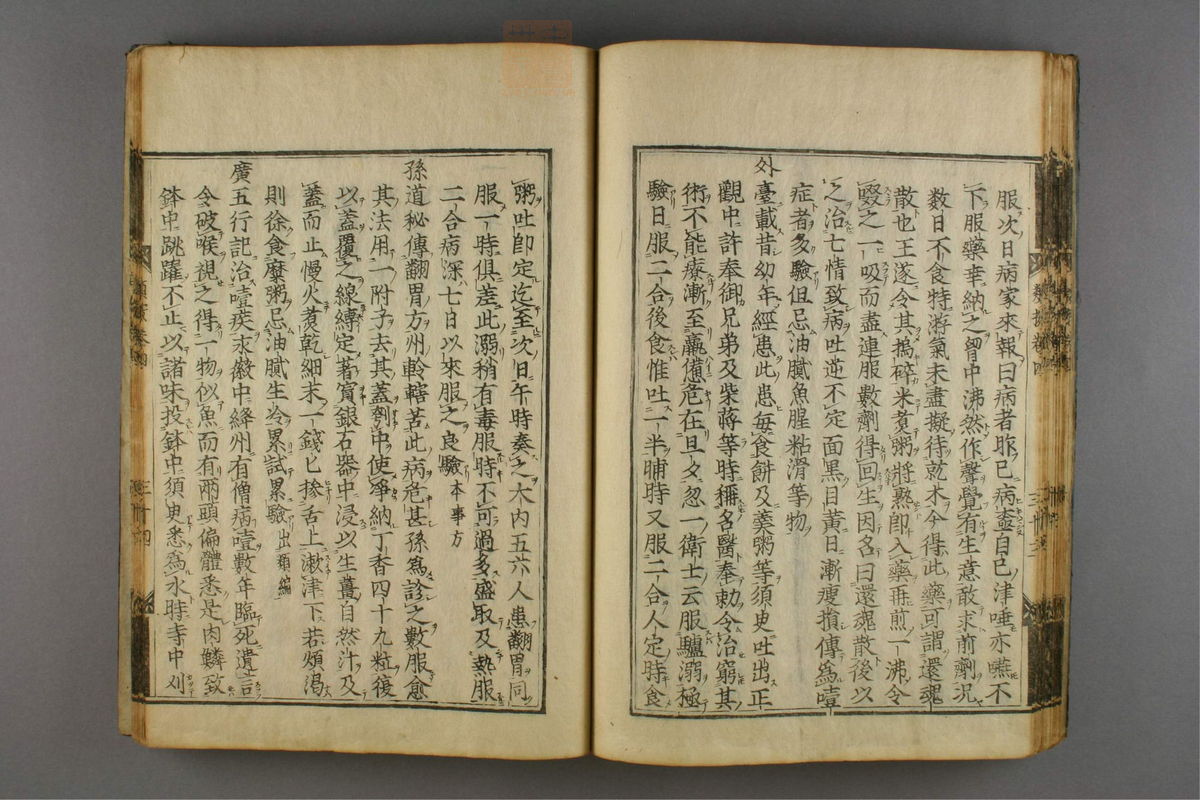 服次日病家來報曰病者昨已病壺自已津唾亦嚥不
下服藥幸納之胷中沸然作聲覺有生意敢求前劑况
数日不食特游氣未盡擬待就木今得此藥可謂還魂
散也王遂令其搗碎米煮粥將熟卽入藥再煎一沸令
啜之一吸而盡連服數劑得回生因名曰還魂散後以
之治七情致病吐逆不定面黒目黃日漸瘦損傳爲噎
症者多驗但忌油膩魚腥粘滑等物
外臺載昔幼年經患此患每食餅及羹粥等須臾吐出正
觀中許奉御兄弟及柴蒋等時稱名醫奉勅令治窮其
術不能療漸至羸憊危在旦夕忽一衛士云服驢溺極
驗日服二合後食惟吐一半晡時又服二合人定時食
粥吐卽定迄至次日午時奏之大内五六人患翻胃同
服一時俱差此溺稍有毒服時不可過多盛取及熱服
二合病深七日以來服之良驗本事方
孫道秘傳翻胃方州軨轄苦此病危甚孫爲診之數服愈
其法用一附子去其蓋剜中使淨納丁香四十九粒復
以蓋覆之線縛定著寘銀石器中浸以生薑自然汁及
蓋而止慢火煮乾細末一錢匕摻舌上漱津下若煩渴
則徐食糜粥忌油膩生冷累試累驗出類編
廣五行記治噎疾永徽中絳州有僧病噎數年臨死遺言
令破喉視之得一物似魚而有兩頭偏體悉是肉鱗致
鉢中跳躍不止以諸味投鉢中須臾悉爲水時寺中刈